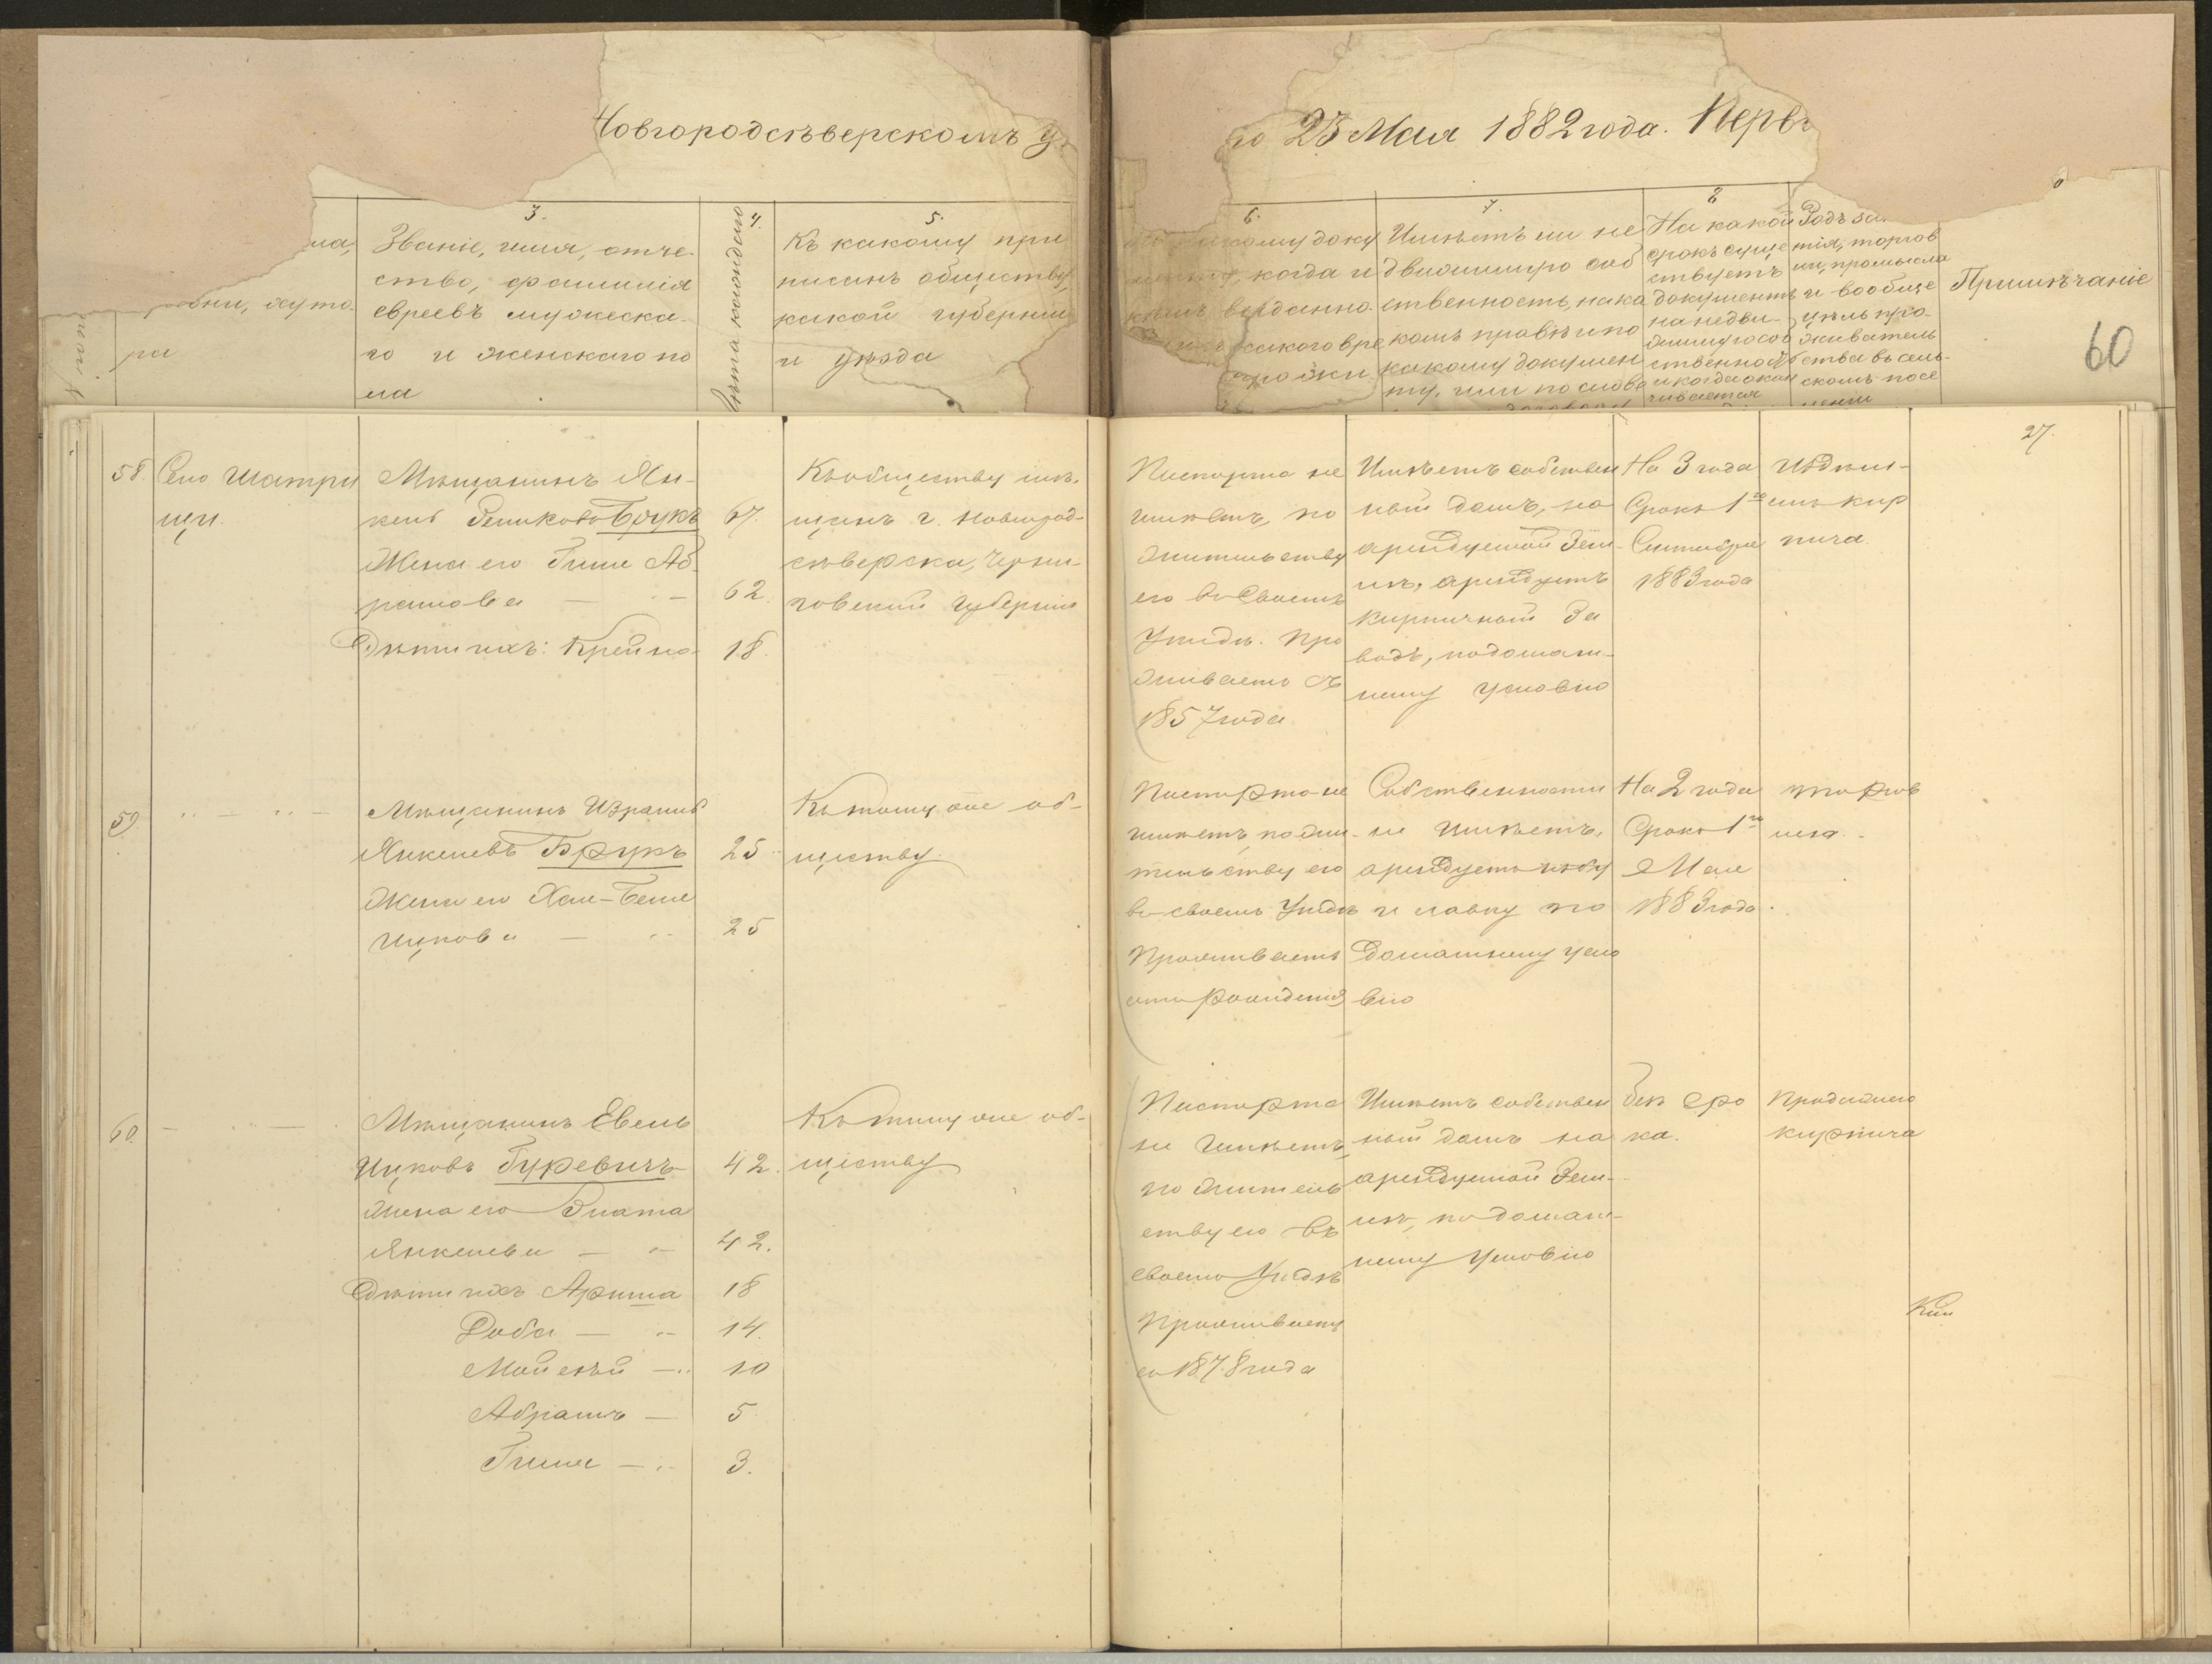 Новгородсѣверскомъ у
го 23 Мая 1882 года. Перв
3.
4.
5.
Званіе, имя, отче-
ство, фамилія
евреевъ мужеска-
го и женскаго по
ла
Лѣта каждаго
Къ какому при
писанъ обществу,
какой губерніи
и уѣзда
6.
7.
8
какому доку
когда и
выданно.
какого вре
Имѣетъ ли не
движимую соб
ственность, на ка
комъ правѣ и по
какому докумен
ту, или по слове
На какой
срокъ суще
ствуетъ
документъ
на недви-
жимую соб
ственность
и когда окан
чивается
Родъ за
тія, торгов
ли, промысла
и вообще
цѣль про-
живатель
ства въ сель-
скомъ посе
леніи
Примѣчаніе
60
27.
58.
Село Шатри
щи.
Мѣщанинъ Ян-
кель Брукъ
67.
Жена его Гися Аб-
рамова
62.
Дѣти ихъ: Крейна
18.
Къ обществу мѣ-
щанъ г. Новгород-
сѣверска, Черни-
говской губерніи
Паспорта не
имѣетъ, по
жительству
его въ своемъ
Уѣздѣ. Про
живаетъ съ
1857 года
Имѣетъ собствен
ный домъ, на
арендуемой Зем-
лѣ, арендуетъ
кирпичный За
водъ, по домаш-
нему условію
На 3 года
Срокъ 1го
Сентября
1883 года
Издѣл-
ль кир
пича.
59.
Мѣщанинъ Израиль
Янкелевъ Брукъ
25
Жена его Хая-Бейля
Ицкова
25
Къ тому же об-
ществу.
Паспорта не
имѣетъ, по жи-
тельству его
въ своемъ Уѣздѣ
Проживаетъ
отъ рожденія
Собственности
не имѣетъ,
арендуетъ избу
и лавку по
домашнему усло
вію
На 2 года
Срокъ 1го
Мая
1883 года.
торгов
ля.
60.
Мѣщанинъ Евель
Ицковъ Гуревичъ
42.
Жена его Злата
Янкелева
42.
Дѣти ихъ
18
Доба
14.
Мойсей
10
Абрамъ
5
3.
Къ тому же об-
ществу
Паспорта
не имѣетъ,
по житель
ству его въ
своемъ Уѣздѣ
Проживаетъ
съ 1878 года
Имѣетъ собствен
ный домъ на
арендуемой Зем-
лѣ, по домаш-
нему условію
безъ сро
ка.
Продажею
кирпича